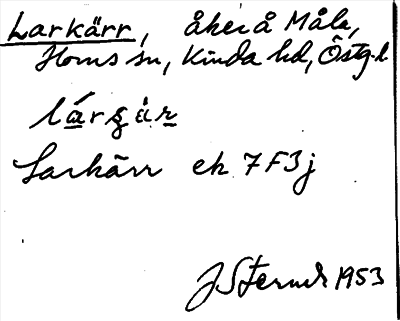 Larkärr, åker å Måla,
Horns sn, Kinda hd, Östg.l
Larkärr ek 7F3j
JSterner 1953